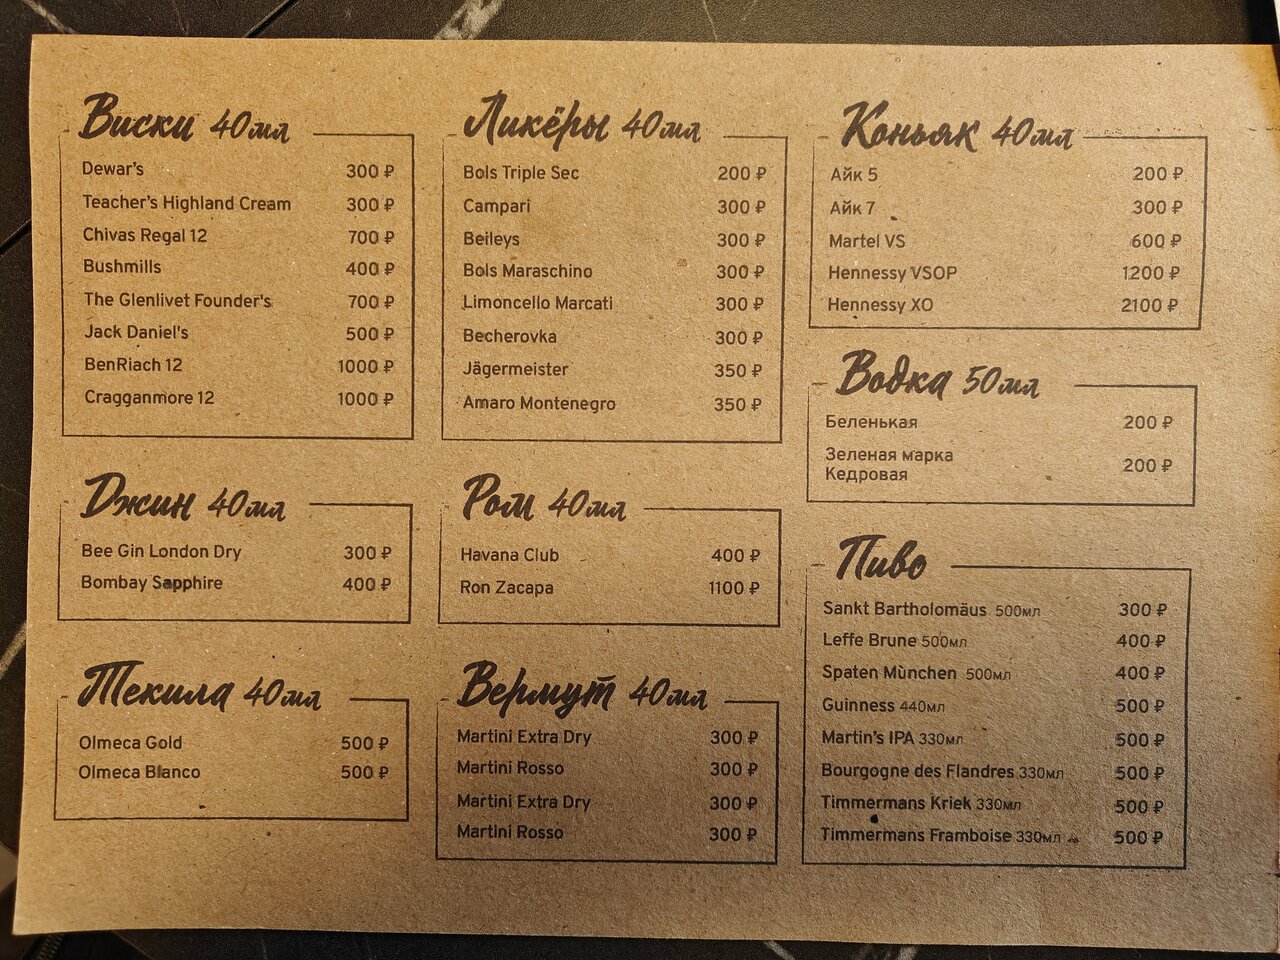 Виски 40мл
Dewar's 300 ₽
Teacher's Highland Cream 300 ₽
Chivas Regal 12 700 ₽
Bushmills 400 ₽
The Glenlivet Founder's 700 ₽
Jack Daniel's 500 ₽
BenRiach 12 1000 ₽
Cragganmore 12 1000 ₽
Джин 40мл
Bee Gin London Dry 300 ₽
Bombay Sapphire 400 ₽
Текила 40мл
Olmeca Gold 500 ₽
Olmeca Blanco 500 ₽
Ликёры 40мл
Bols Triple Sec 200 ₽
Campari 300 ₽
Beileys 300 ₽
Bols Maraschino 300 ₽
Limoncello Marcati 300 ₽
Becherovka 300 ₽
Jägermeister 350 ₽
Amaro Montenegro 350 ₽
Ром 40мл
Havana Club 400 ₽
Ron Zacapa 1100 ₽
Вермут 40мл
Martini Extra Dry 300 ₽
Martini Rosso 300 ₽
Martini Extra Dry 300 ₽
Martini Rosso 300 ₽
Коньяк 40мл
Айк 5 200 ₽
Айк 7 300 ₽
Martel VS 600 ₽
Hennessy VSOP 1200 ₽
Hennessy XO 2100 ₽
Водка 50мл
Беленькая 200 ₽
Зеленая марка
Кедровая 200 ₽
Пиво
Sankt Bartholomäus 500мл 300 ₽
Leffe Brune 500мл 400 ₽
Spaten Mùnchen 500мл 400 ₽
Guinness 440мл 500 ₽
Martin's IPA 330мл 500 ₽
Bourgogne des Flandres 330мл 500 ₽
Timmermans Kriek 330мл 500 ₽
Timmermans Framboise 330мл 500 ₽